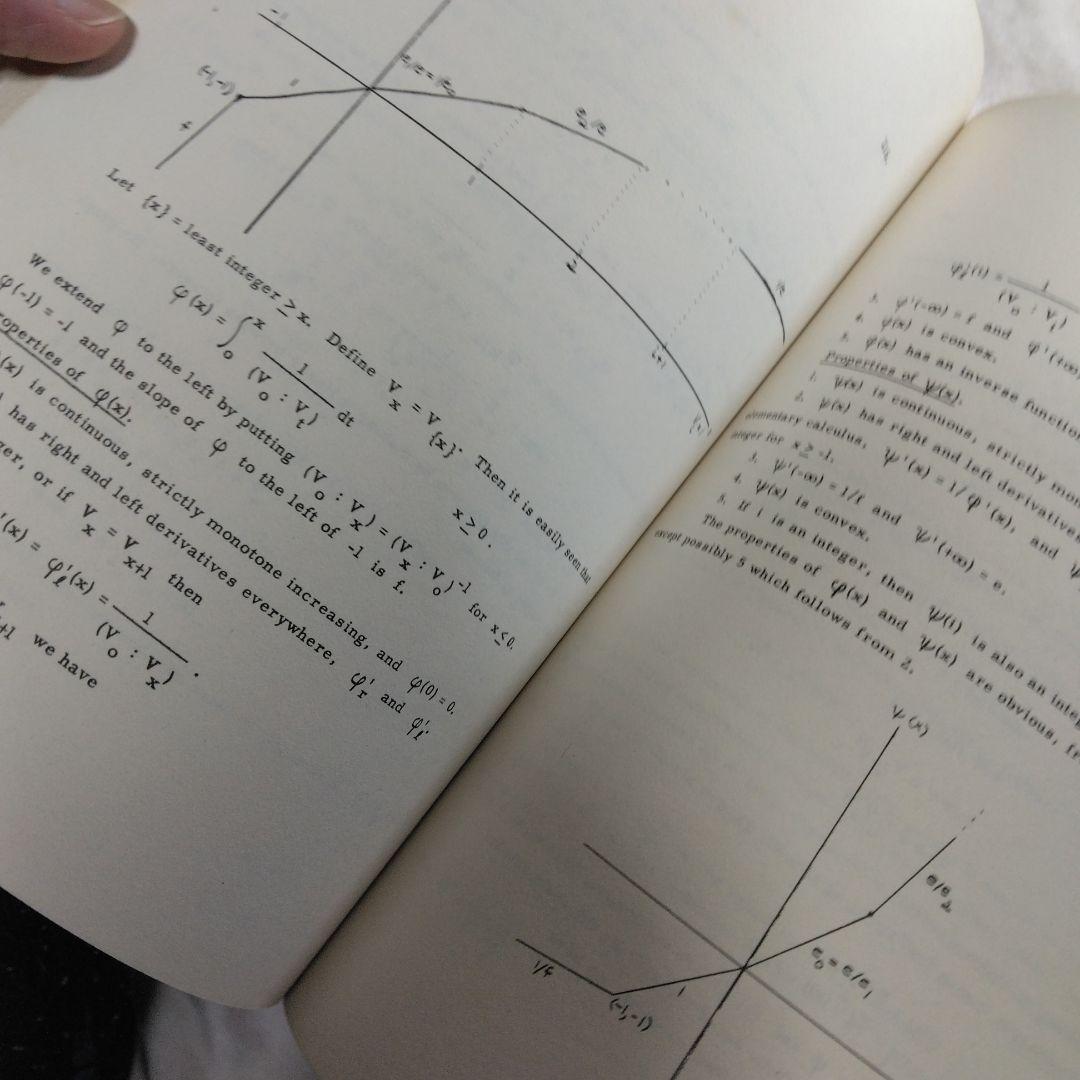 -1
(-1,-1)
1
f
e₁/e=1/e₀
e₂/e
1
2
1/e
Let {x} = least integer ≥ x. Define V_x = V_{x}. Then it is easily seen that
φ(x) = ∫₀ˣ 1/(V₀ : V_t) dt x ≥ 0.
We extend φ to the left by putting (V₀ : V_x) = (V_x : V₀)⁻¹ for x ≤ 0.
φ(-1) = -1 and the slope of φ to the left of -1 is f.
Properties of φ(x).
(x) is continuous, strictly monotone increasing, and φ(0) = 0.
has right and left derivatives everywhere, φ'_r and φ'_ℓ.
or if V_x = V_{x+1} then
'(x) = φ'_ℓ(x) = 1/(V₀ : V_x).
we have
φ'_ℓ(i) = 1/(V₀ : V_i)
3. φ'(-∞) = f and φ'(+∞)
4. φ(x) is convex.
5. φ(x) has an inverse function
Properties of ψ(x).
1. ψ(x) is continuous, strictly
2. ψ(x) has right and left derivatives
elementary calculus, ψ'(x) = 1/φ'(x), and ψ
integer for x ≥ -1.
3. ψ'(-∞) = 1/f and ψ'(+∞) = e.
4. ψ(x) is convex.
5. If i is an integer, then ψ(i) is also an
The properties of φ(x) and ψ(x) are obvious,
except possibly 5 which follows from 2.
ψ(x)
e/e₂
e₀=e/e₁
1/f
1
(-1,-1)